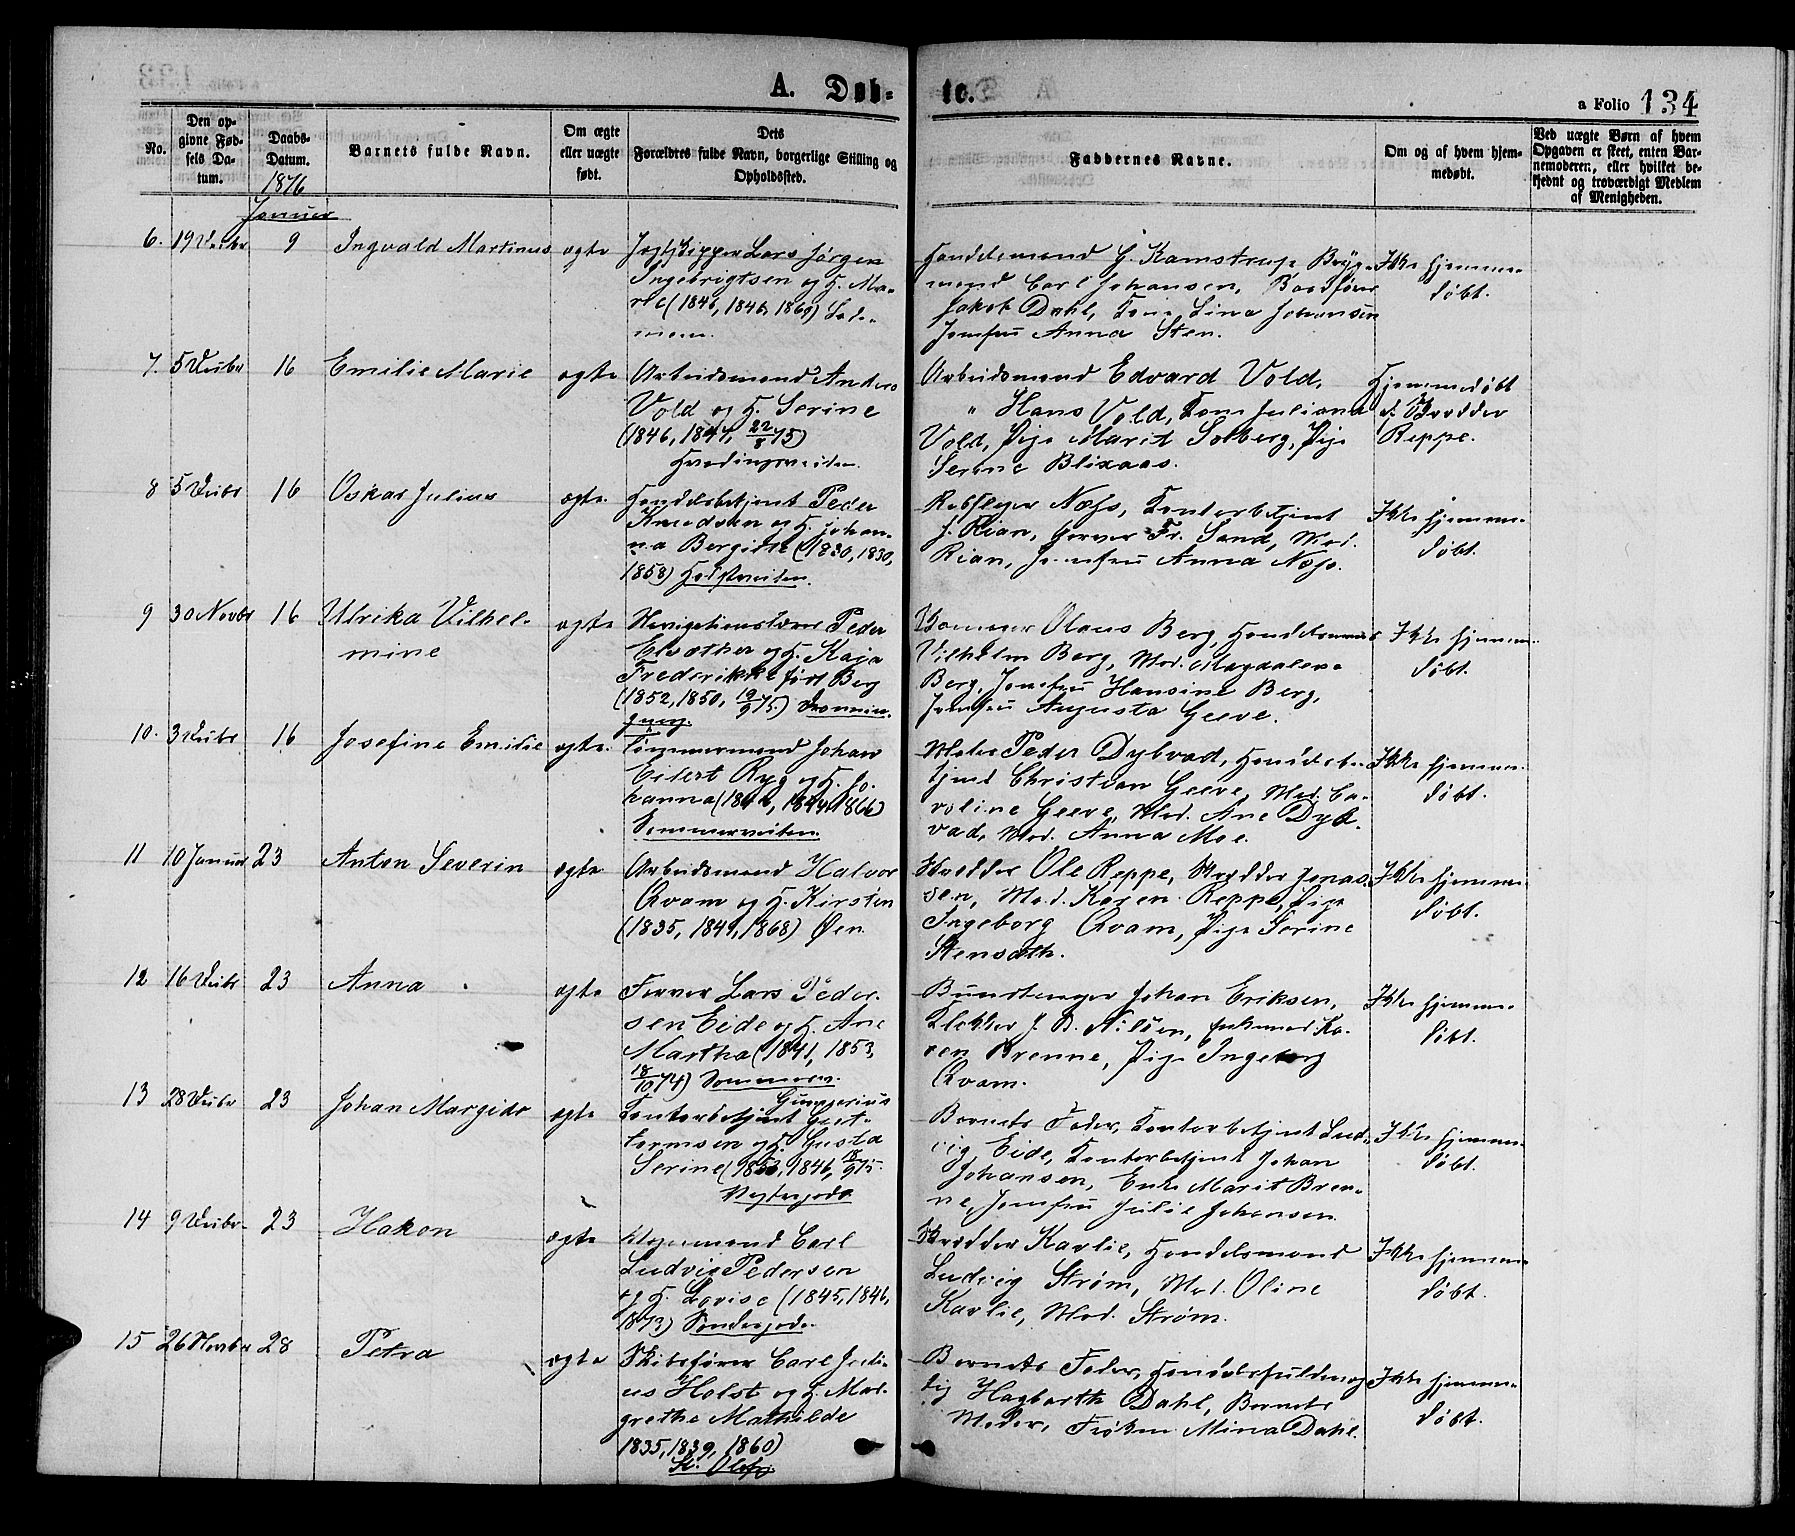 A. Døb-
te.
a Folio 134
No.
Den op-
givne Fød-
sels Da-
tum.
Daabs-
Datum.
1876
Barnets fulde Navn.
Om ægte
eller uægte
født.
Dets
Forældres fulde Navn, borgerlige Stilling og
Opholdssted.
Faddernes Navne.
Om og af hvem hjem-
medøbt.
Ved uægte Børn af hvem
Opgaven er skeet, enten Bar-
nemoderen, eller hvilket be-
kjendt og troværdigt Medlem
af Menigheden.
Januar
6. 19 9 Ingvald Martinus ægte
Lars Jørgen
Ingebrigtsen og H. Ma-
(1846, 1846, 1860)
Handelsmand G. Kamstrup, Bryg-
mand Carl Johansen,
Jakob Dahl, Kone Lina Johansen
Jomfru Anna Sten.
Ikke hjemme-
døbt.
7. 5 Decbr 16 Emilie Marie ægte
Arbeidsmand Anders
Vold og H. Serine
(1846, 1847, 22/8 75)
Arbeidsmand Edvard Vold,
" Hans Vold, Kone Juliana
Vold, Pige Marit Solberg, Pige
Serine Blixaas.
Hjemmedøbt
Reppe.
8 5 Decbr 16 Oskar Julius ægte
Handelsbetjent Peder
Knudsen og H. Johan-
na Bergitte (1830, 1830,
1858)
Rebslager Næss, Kontorbetjent
J. Rian, Garver Fr. Sand, Mad.
Rian, Jomfru Anna Næss.
Ikke hjemme-
døbt.
9 30 Novbr 16 Ulrika Vilhel-
mine ægte
Navigationslærer Peder
Elvæther og H. Kaja
Frederikke født Berg
(1852, 1850, 19/9 75)
Olaus Berg, Handelsmand
Vilhelm Berg, Mad. Magdalene
Berg, Jomfru Hansine Berg,
Jomfru Augusta Geeve.
Ikke hjemme-
døbt.
10. 3 Decbr 16 Josefine Emilie ægte
Tømmermand Johan
Eilert Ryg og H. Jo-
hanna (1844, 1866)
Sommerveiten.
Maler Peder Dybvad, Handelsbe-
tjent Christian Geeve, Mad. Ca-
roline Geeve, Mad. Ane Dyb-
vad, Mad. Anna Moe.
Ikke hjemme-
døbt.
11 10 Januar 23 Anton Severin ægte
Arbeidsmand Halvor
Qvam og H. Kirsten
(1835, 1849, 1868) Øen
Skrædder Ole Reppe, Skrædder Jonas-
sen, Mad. Karen Reppe, Pige
Ingeborg Qvam, Pige Serine
Stensæth.
Ikke hjemme-
døbt.
12 16 Decbr 23 Anna ægte
Farver Lars Peder-
sen Eide og H. Ane
Martha (1841, 1853,
18/10 74)
Bundtmager Johan Eriksen,
Klokker J. B. Nilsen, Enkemad. Ka-
ren Brenne, Pige Ingeborg
Qvam.
Ikke hjemme-
døbt.
13 28 Decbr 23 Johan Margido ægte
Kontorbetjent
og H. Gusta
Serine (1853, 1846, 18/9 75
Barnets Fader, Kontorbetjent Lud-
vig Eide, Kontorbetjent Johan
Johansen, Enke Marit Bren-
ne, Jomfru Julie Johansen
Ikke hjemme-
døbt.
14 9 Decbr 23 Hakon ægte
Carl
Ludvig Pedersen
og H. Lovise (1845, 1846,
1873) Søndregade.
Skrædder Kavlie, Handelsmand
Ludvig Strøm, Mad. Oline
Kavlie, Mad. Strøm.
Ikke hjemme-
døbt.
15 26 Novbr 28 Petra ægte
Skibsfører Carl Juli-
us Holst og H. Mar-
grethe Mathilde
1835, 1839, 1860)
Barnets Fader, Handelsfuldmæg-
tig Hagbarth Dahl, Barnets
Moder, Frøken Mina Dahl.
Ikke hjemme-
døbt.